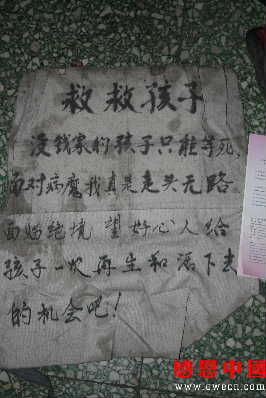 救救孩子
没钱家的孩子只能等死,
面对病魔我真是走头无路
面临绝境 望好心人给
孩子一次再生和活下去
的机会吧!
感恩中國
www.cwecn.com